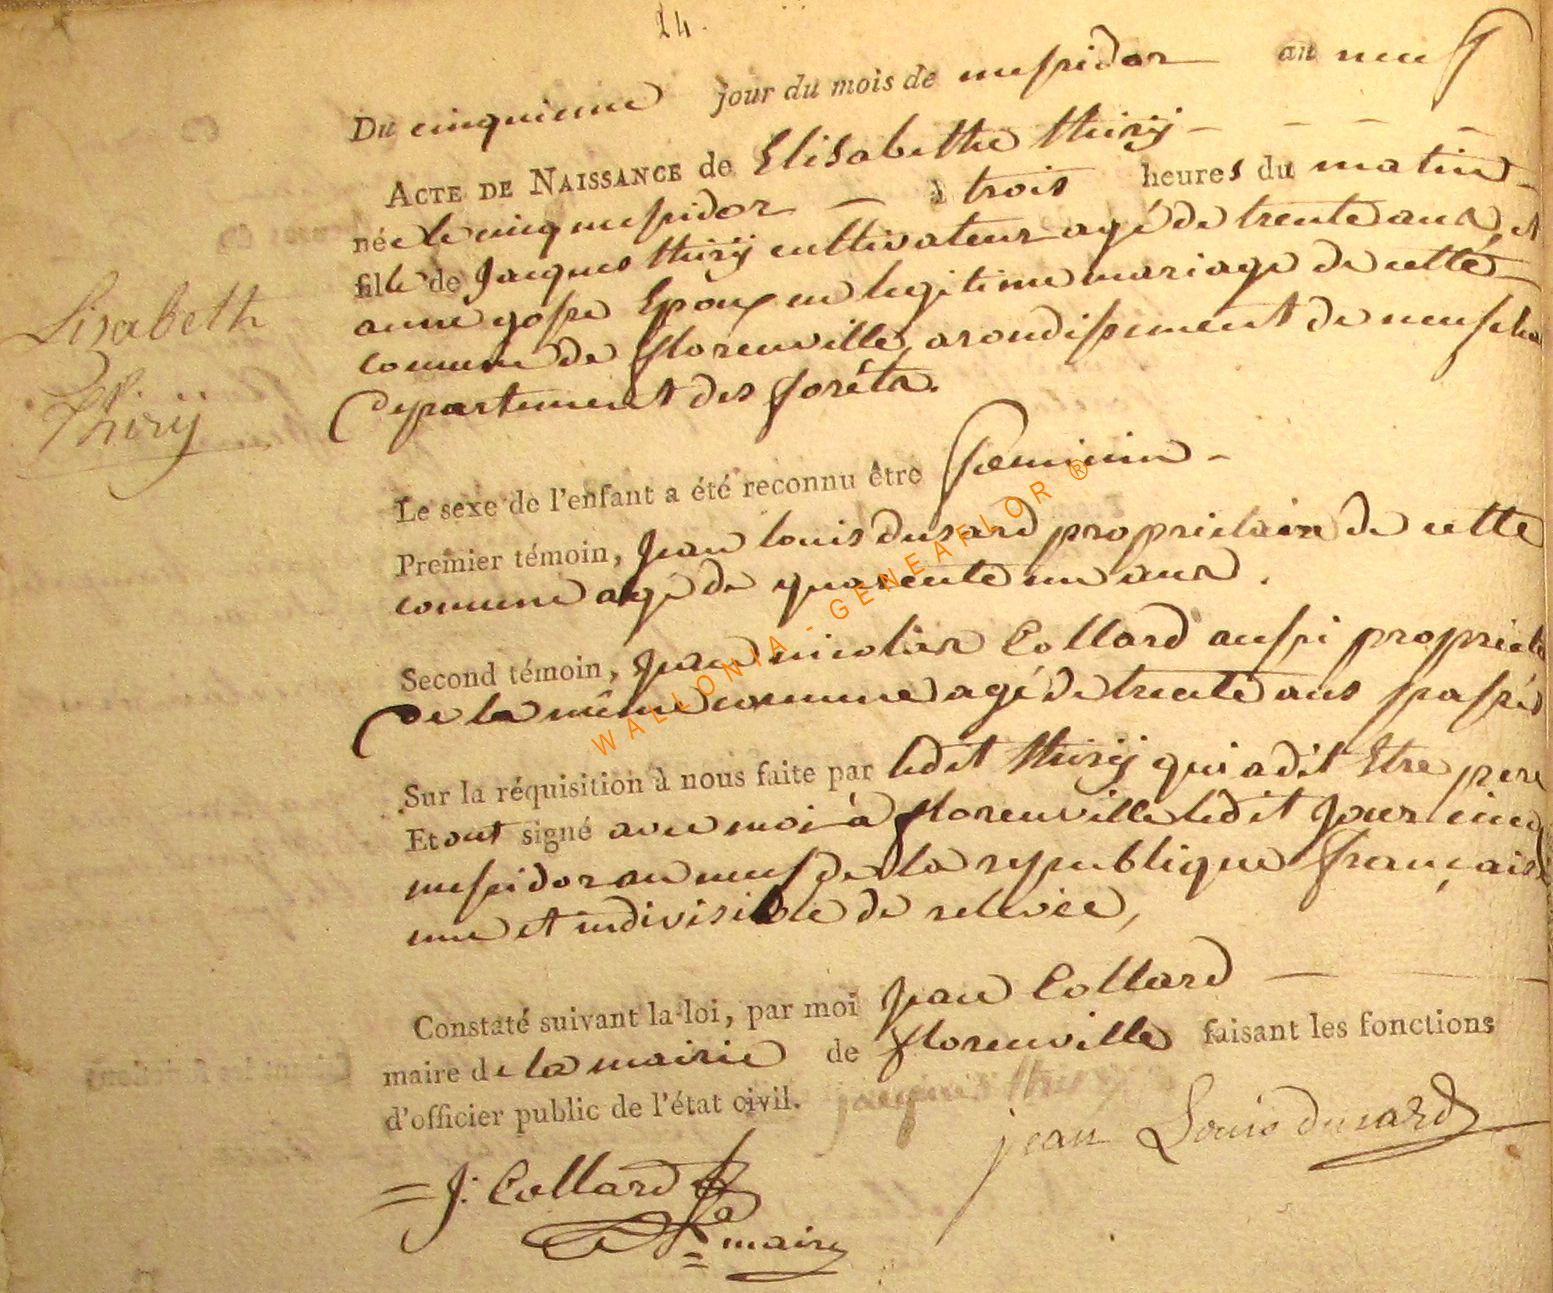 24.
Du cinquieme jour du mois de messidor an neuf
ACTE DE NAISSANCE de Elisabethe thirÿ
née le cinq messidor à trois heures du matin
fille de Jacques thirÿ cultivateur agé de trente ans, et
anne gosse Epoux en legitime mariage de cette
comune de florenville, arondissement de neufcha
Departement des forêts.
Lisabeth
Thirÿ
Le sexe de l'enfant a été reconnu être feminin
Premier témoin, Jean louis dusard proprietaire de cette
comune agé de quarente un ans.
Second témoin, Jean nicolas Collard aussi propriet
De la même comune agé de trente ans passés
Sur la réquisition à nous faite par ledit thirÿ qui a dit Etre pere
Et ont signé avec moi à florenville ledit Jour cinq
messidor an neuf de la republique française
une et indivisible de relevée,
Constaté suivant la loi, par moi Jean Collard
maire de la mairie de florenville faisant les fonctions
d'officier public de l'état civil. jacques thiry
jean Louis dusard
J: Collard
maire
WALLONIA - GENEAFLOR ®